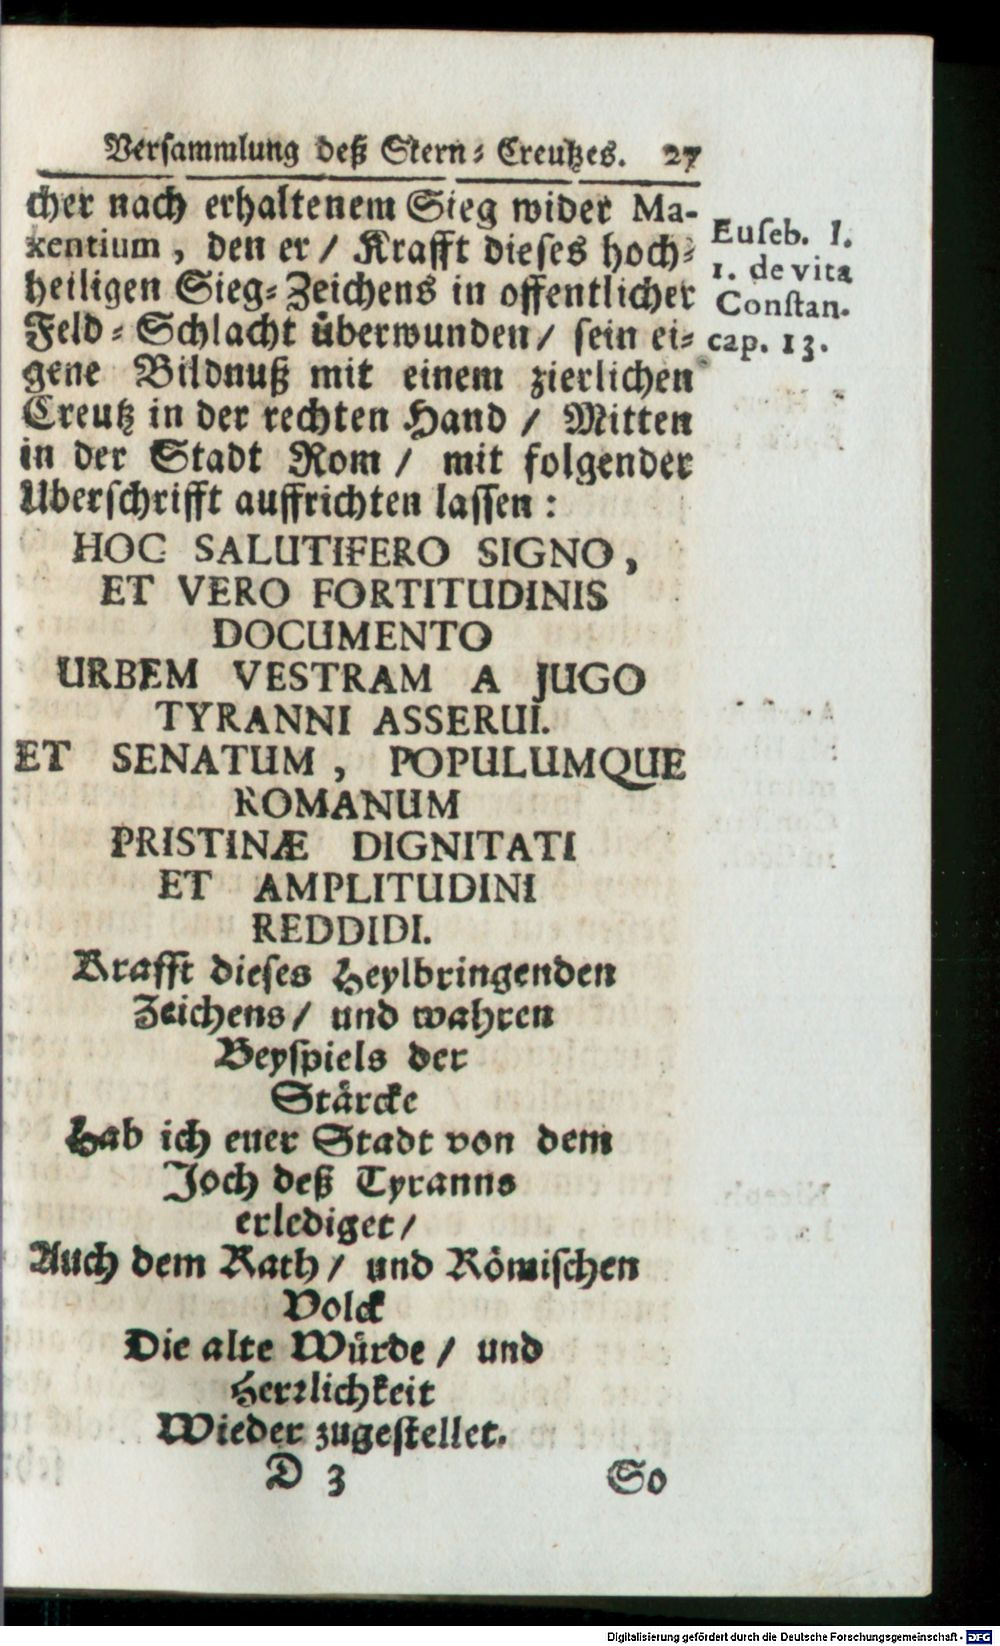 Versammlung deß Stern⸗Creutzes. 27
cher nach erhaltenem Sieg wider Ma-
xentium, den er / Krafft dieses hoch⸗
heiligen Sieg⸗Zeichens in offentlicher
Feld⸗Schlacht uͤberwunden / sein ei⸗
gene Bildnuß mit einem zierlichen
Creutz in der rechten Hand / Mitten
in der Stadt Rom / mit folgender
Uberschrifft auffrichten lassen:
Euseb. l.
1. de vita
Constan.
cap. 13.
HOC SALUTIFERO SIGNO,
ET VERO FORTITUDINIS
DOCUMENTO
URBEM VESTRAM A JUGO
TYRANNI ASSERUI.
ET SENATUM, POPULUMQUE
ROMANUM
PRISTINÆ DIGNITATI
ET AMPLITUDINI
REDDIDI.
Krafft dieses Heylbringenden
Zeichens / und wahren
Beyspiels der
Staͤrcke
Hab ich euer Stadt von dem
Joch deß Tyranns
erlediget /
Auch dem Rath / und Roͤmischen
Volck
Die alte Wuͤrde / und
Herrlichkeit
Wieder zugestellet.
D 3 So
Digitalisierung gefördert durch die Deutsche Forschungsgemeinschaft - DFG